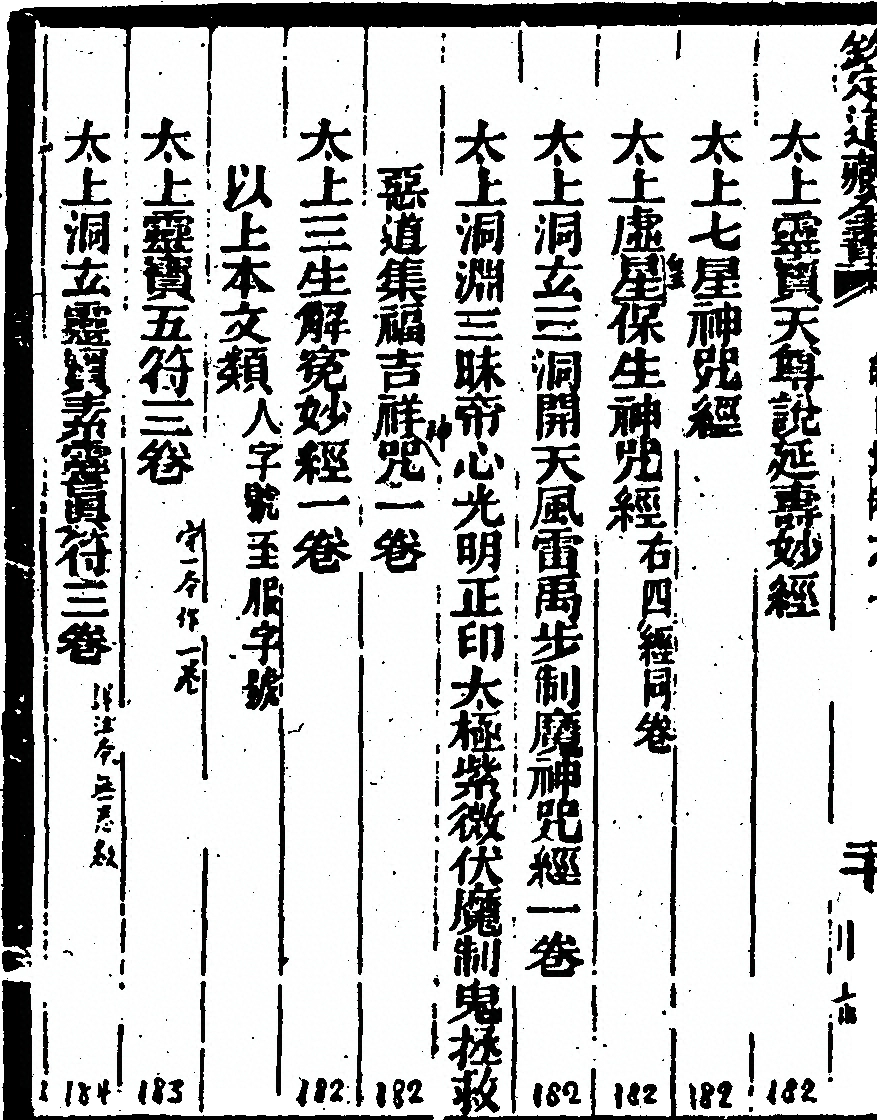 太上靈寶天尊說延壽妙經
182
太上七星神咒經
182
太上虛星保生神咒經 右四經同卷
皇
182
太上洞玄三洞開天風雷禹步制魔神咒經一卷
182
太上洞淵三昧帝心光明正印太極紫微伏魔制鬼拯救
惡道集福吉祥咒一卷
神
182
太上三生解冤妙經一卷
182
以上本文類 人字號至服字號
太上靈寶五符三卷
183
太上洞玄靈寶素靈眞符三卷
184